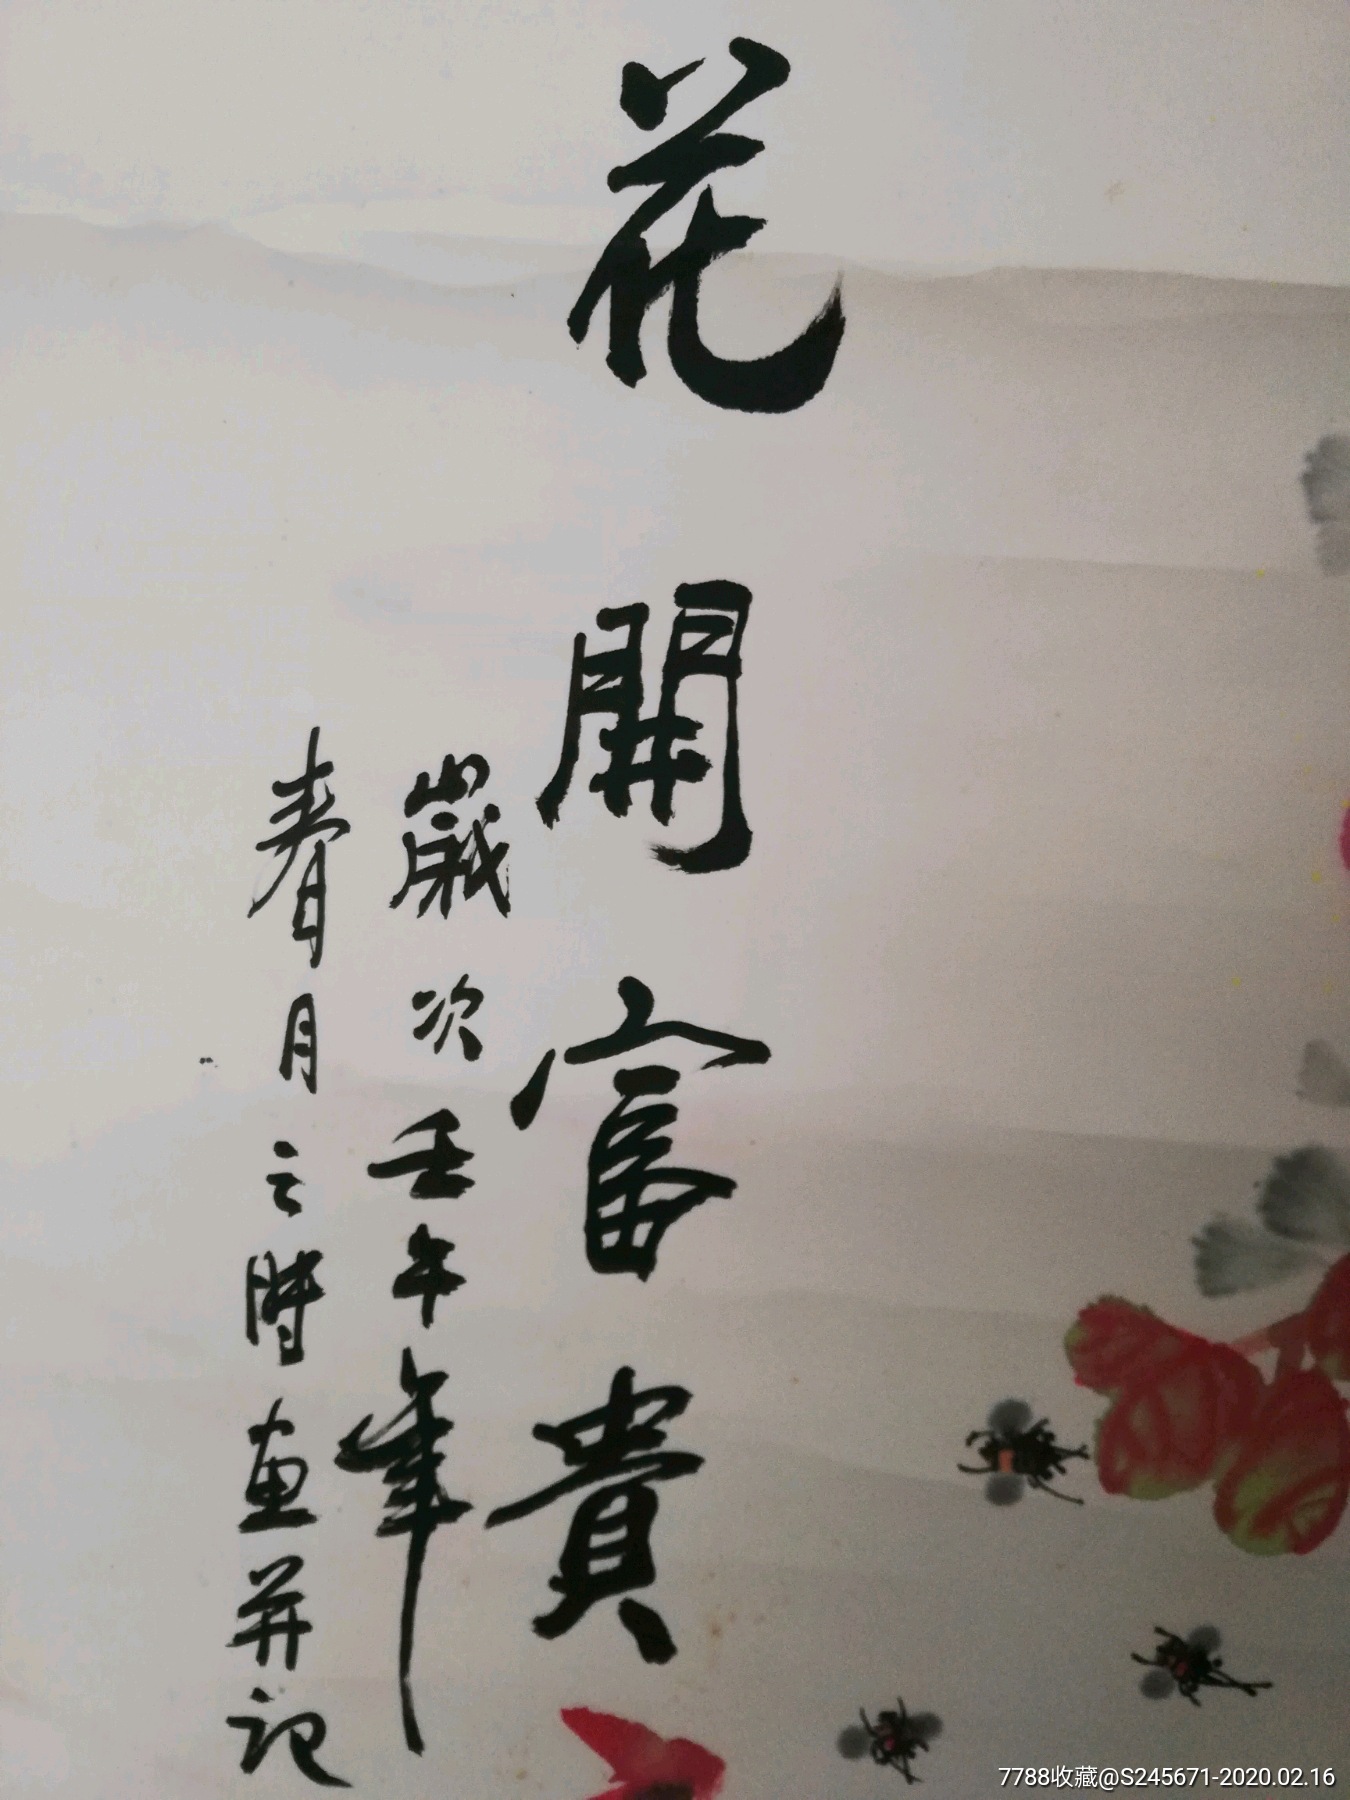 花開富貴
歲次壬午年
春月之時畫并記
7788收藏@S245671-2020.02.16